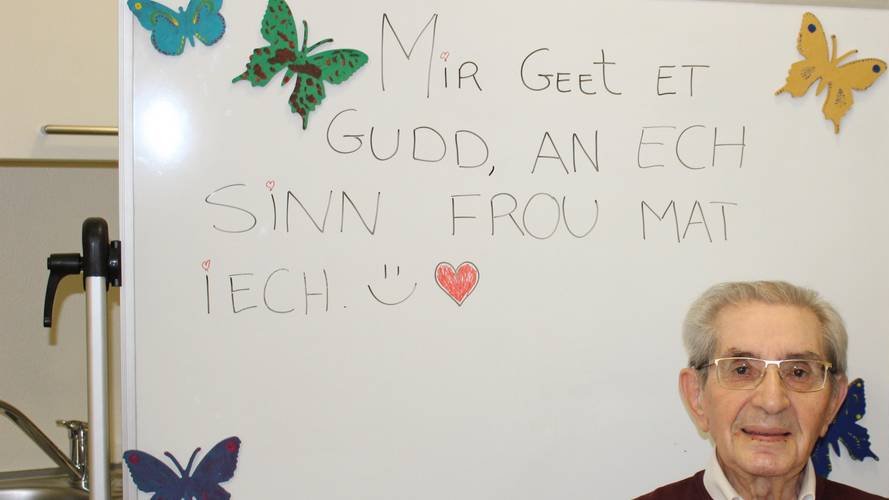 Mir Geet et
GUDD, AN ECH
SiNN FROU MAT
iECH.